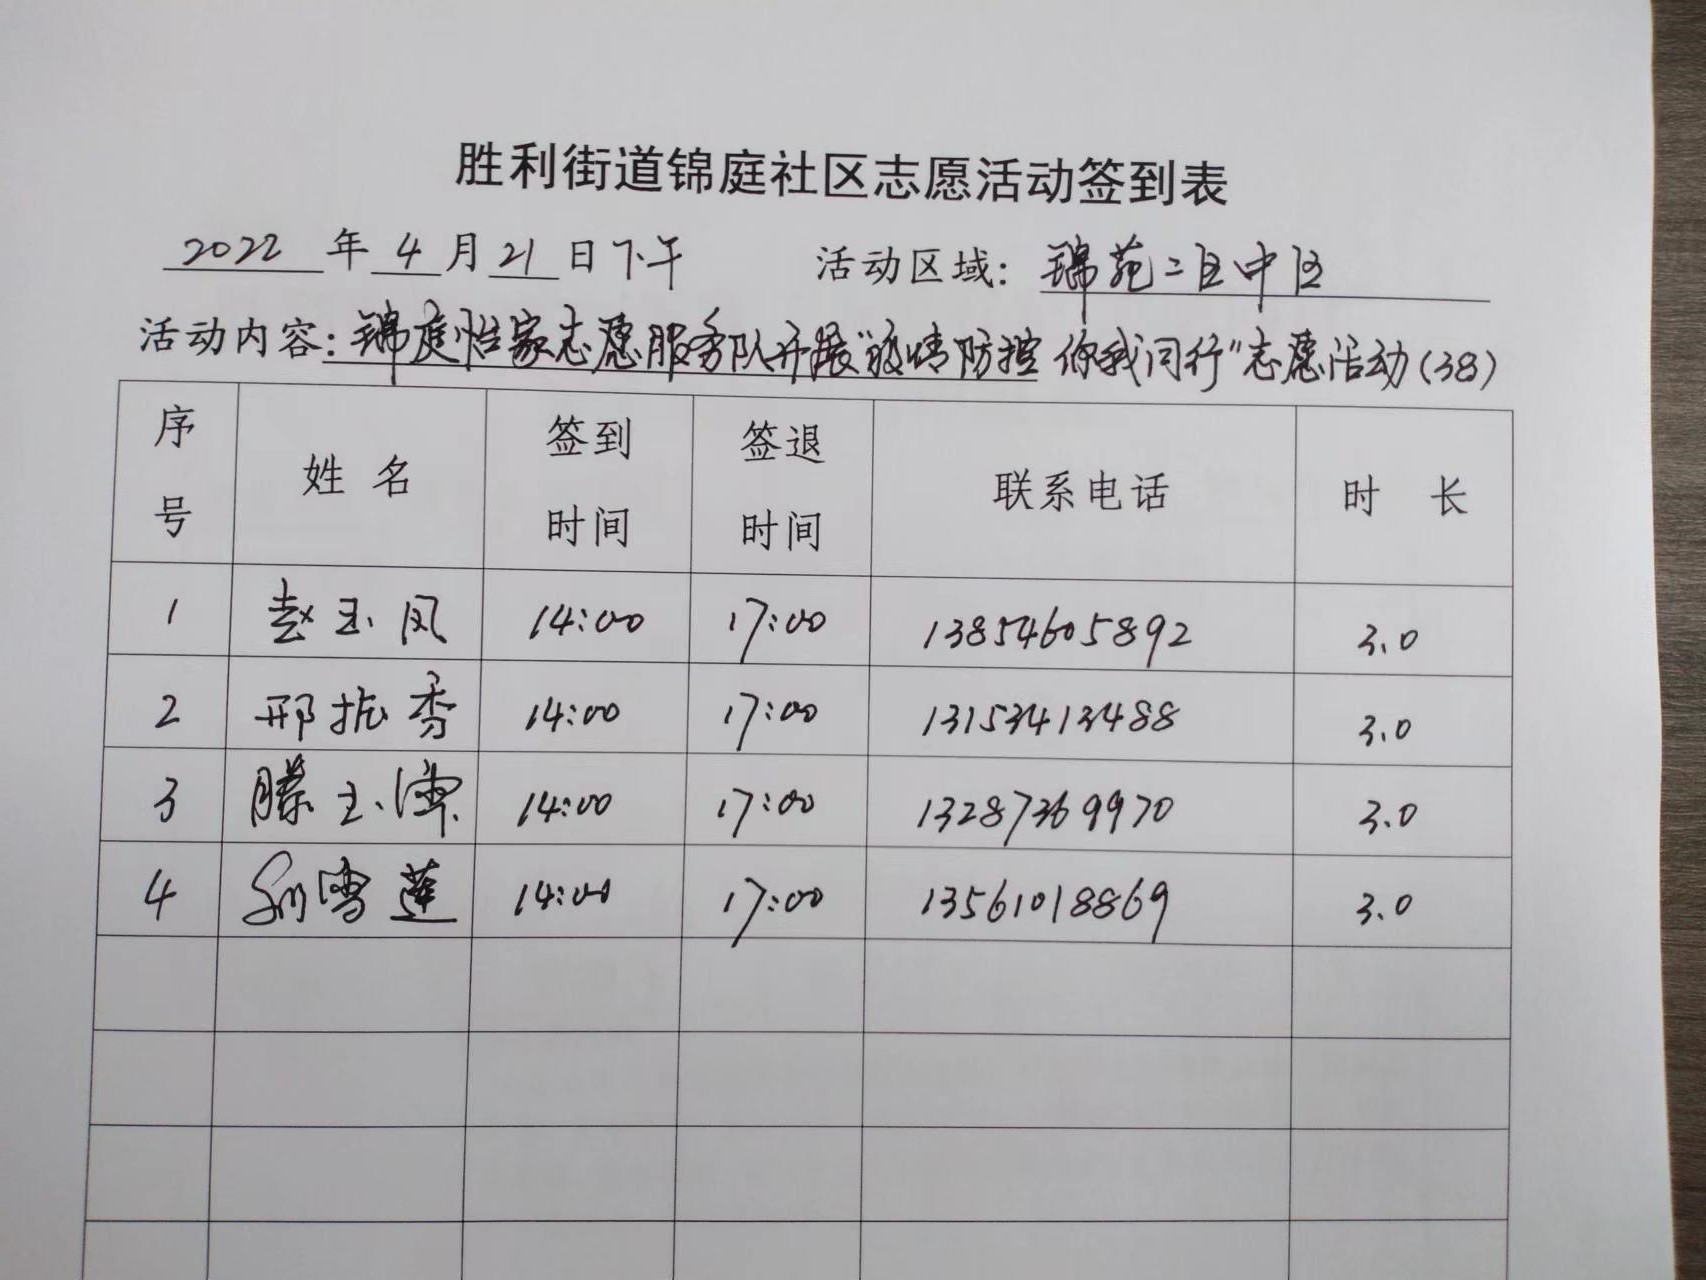 胜利街道锦庭社区志愿活动签到表
2022 年 4 月 21 日下午 活动区域: 锦苑二区中区
活动内容: 锦庭怡家志愿服务队开展"疫情防控 你我同行"志愿活动(38)
序号 姓名 签到时间 签退时间 联系电话 时长
1 赵玉凤 14:00 17:00 13854605892 3.0
2 邢振秀 14:00 17:00 13153413488 3.0
3 滕玉 14:00 17:00 13287369970 3.0
4 孙雪莲 14:00 17:00 13561018869 3.0